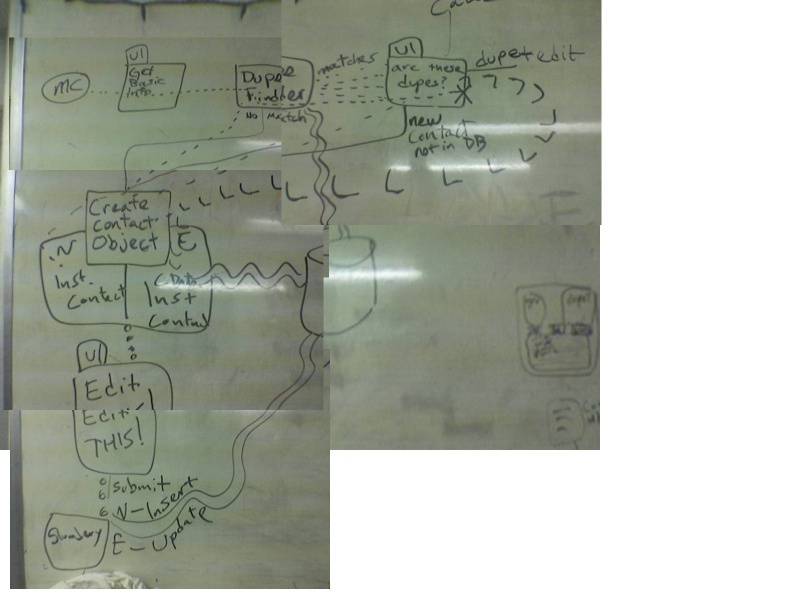 MC
UI
Get
Basic
Info
Dupe
Finder
matches
UI
are these
dupes?
dupe+edit
No Match
new
contact
not in DB
Create
Contact
Object
N
Inst.
Contact
E
Data
Inst
Contact
UI
Edit
Edit
THIS!
submit
N-Insert
E-Update